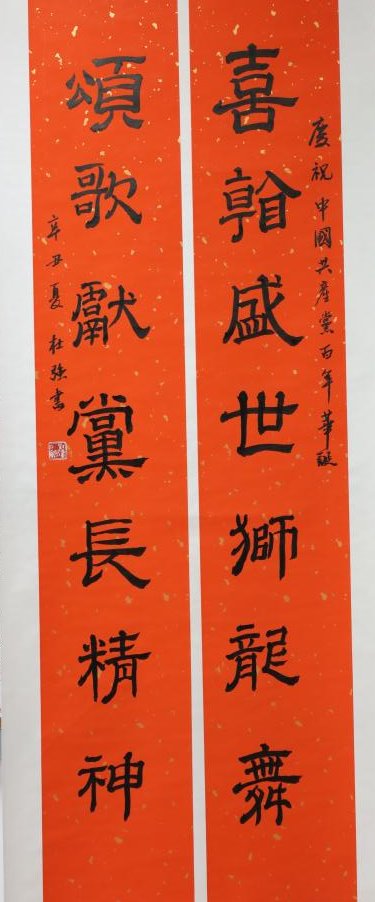 慶祝中國共產黨百年華誕
喜朝盛世獅龍舞
頌歌獻黨長精神
辛丑夏 杜強書